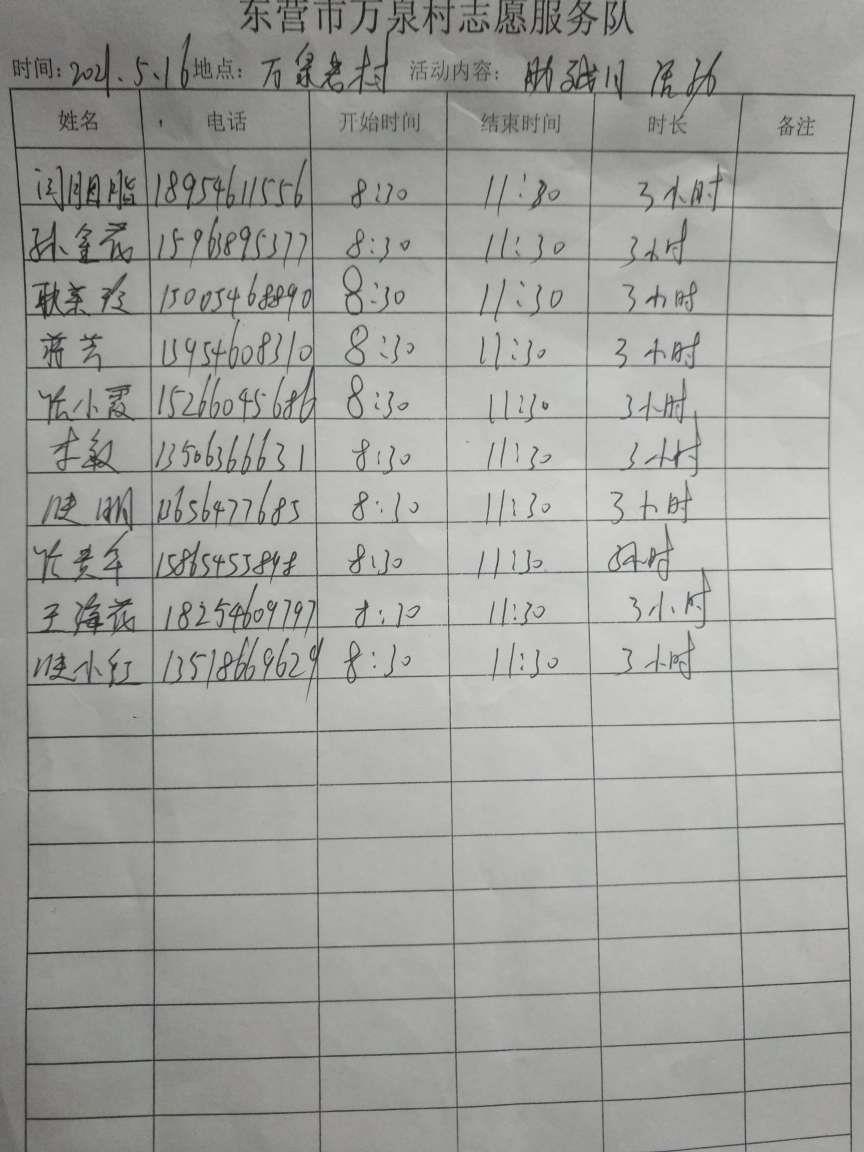 东营市万泉村志愿服务队
时间: 2021.5.16 地点: 万泉老村 活动内容: 助残日 活动
姓名 电话 开始时间 结束时间 时长 备注
18954611556 8:30 11:30 3小时
孙金花 15963895377 8:30 11:30 3小时
耿荣玲 15005468890 8:30 11:30 3小时
蒋芸 13954608310 8:30 11:30 3小时
张小霞 15266045686 8:30 11:30 3小时
李敏 13506366631 8:30 11:30 3小时
陡明 13656477685 8:30 11:30 3小时
张贵军 15865455898 8:30 11:30 3小时
王海花 18254609797 8:30 11:30 3小时
陡小红 13518669629 8:30 11:30 3小时